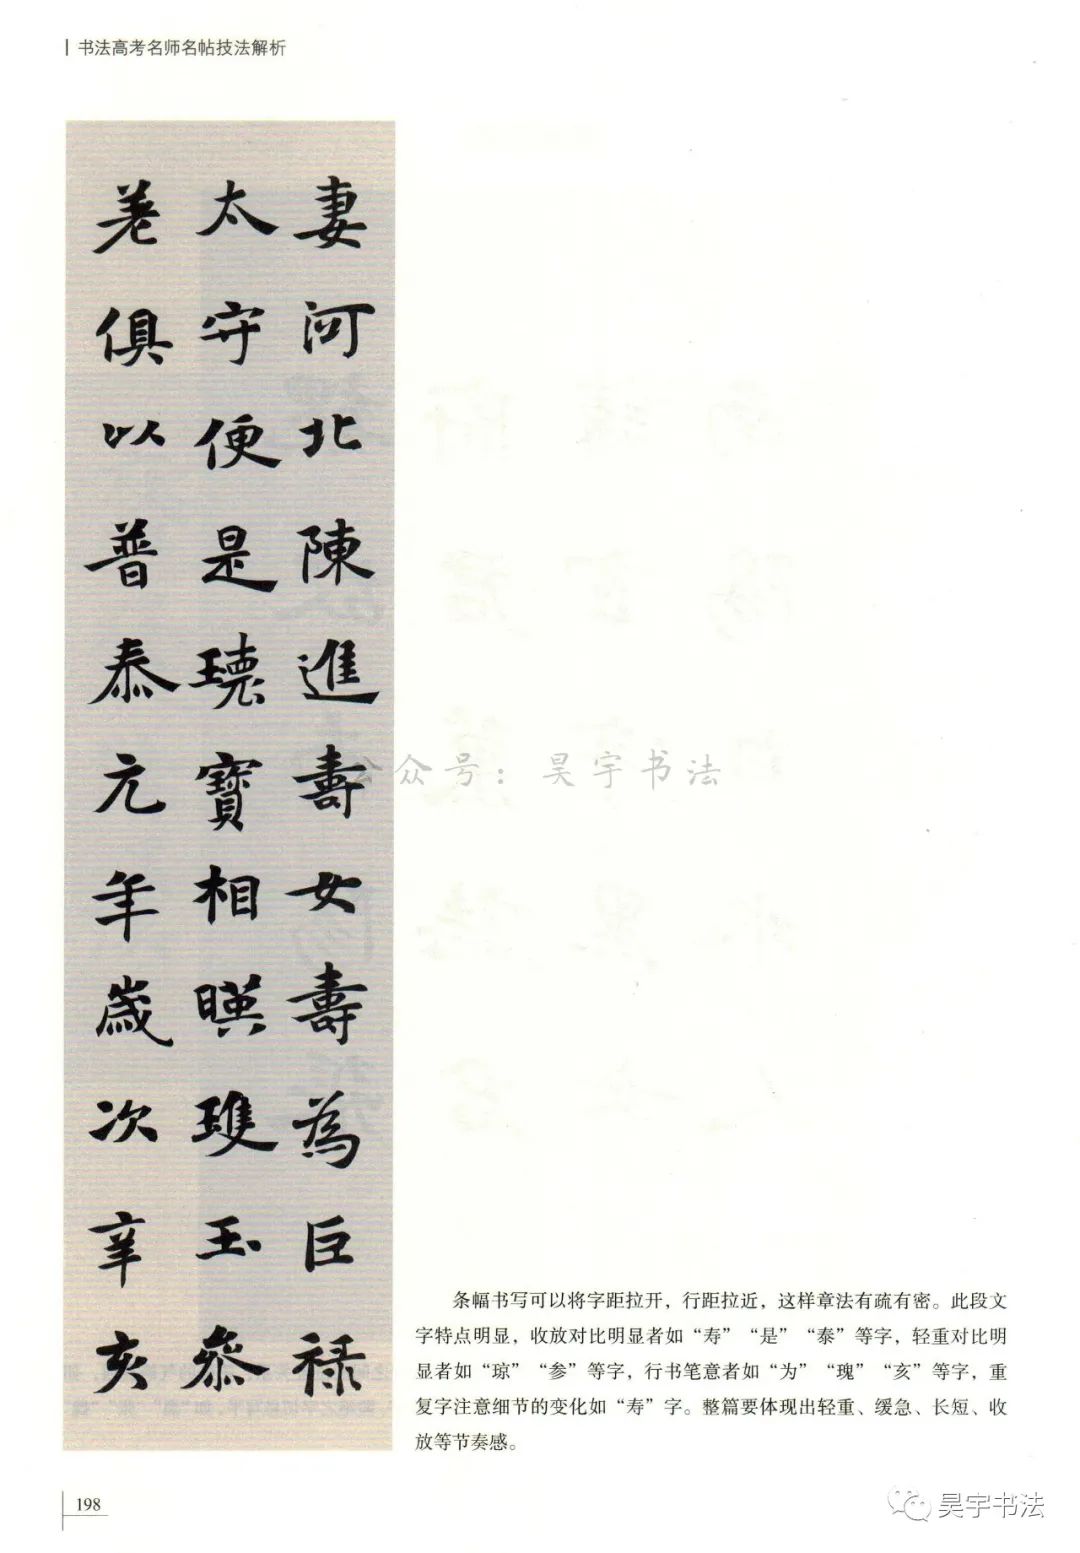 书法高考名师名帖技法解析
妻河北陳進壽女壽為巨祿
太守便是瓌寶相暎瓊玉叅
差俱以普泰元年歲次辛亥
公众号：昊宇书法
条幅书写可以将字距拉开，行距拉近，这样章法有疏有密。此段文
字特点明显，收放对比明显者如“寿”“是”“泰”等字，轻重对比明
显者如“琼”“参”等字，行书笔意者如“为”“瑰”“亥”等字，重
复字注意细节的变化如“寿”字。整篇要体现出轻重、缓急、长短、收
放等节奏感。
198
昊宇书法